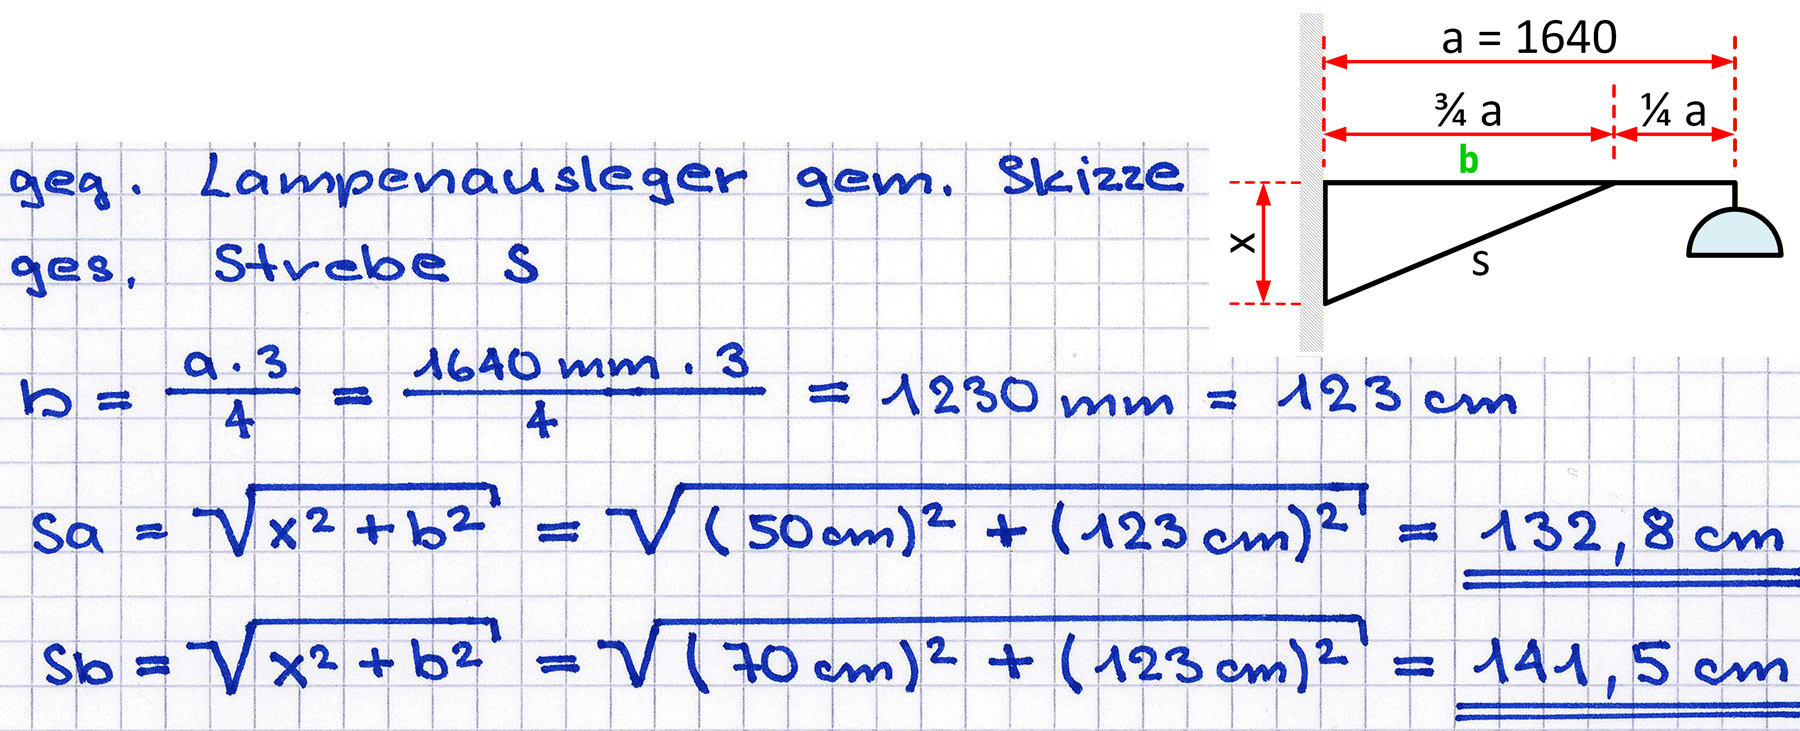 a = 1640
¾ a ¼ a
b
x
s
geg. Lampenausleger gem. Skizze
ges. Strebe s
b = a · 3 / 4 = 1640 mm · 3 / 4 = 1230 mm = 123 cm
sa = √(x² + b²) = √((50 cm)² + (123 cm)²) = 132,8 cm
sb = √(x² + b²) = √((70 cm)² + (123 cm)²) = 141,5 cm